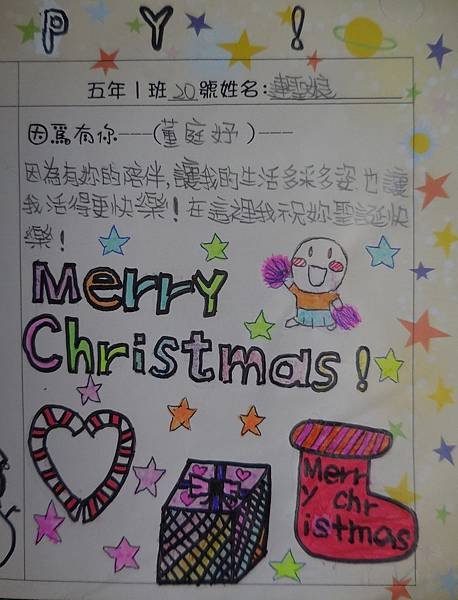 PY!
五年1班20號姓名:
因為有你---(董庭妤)---
因為有妳的陪伴,讓我的生活多采多姿也讓
我活得更快樂!在這裡我祝妳聖誕快
樂!
Merry
Christmas!
Merr
y chr
istmas